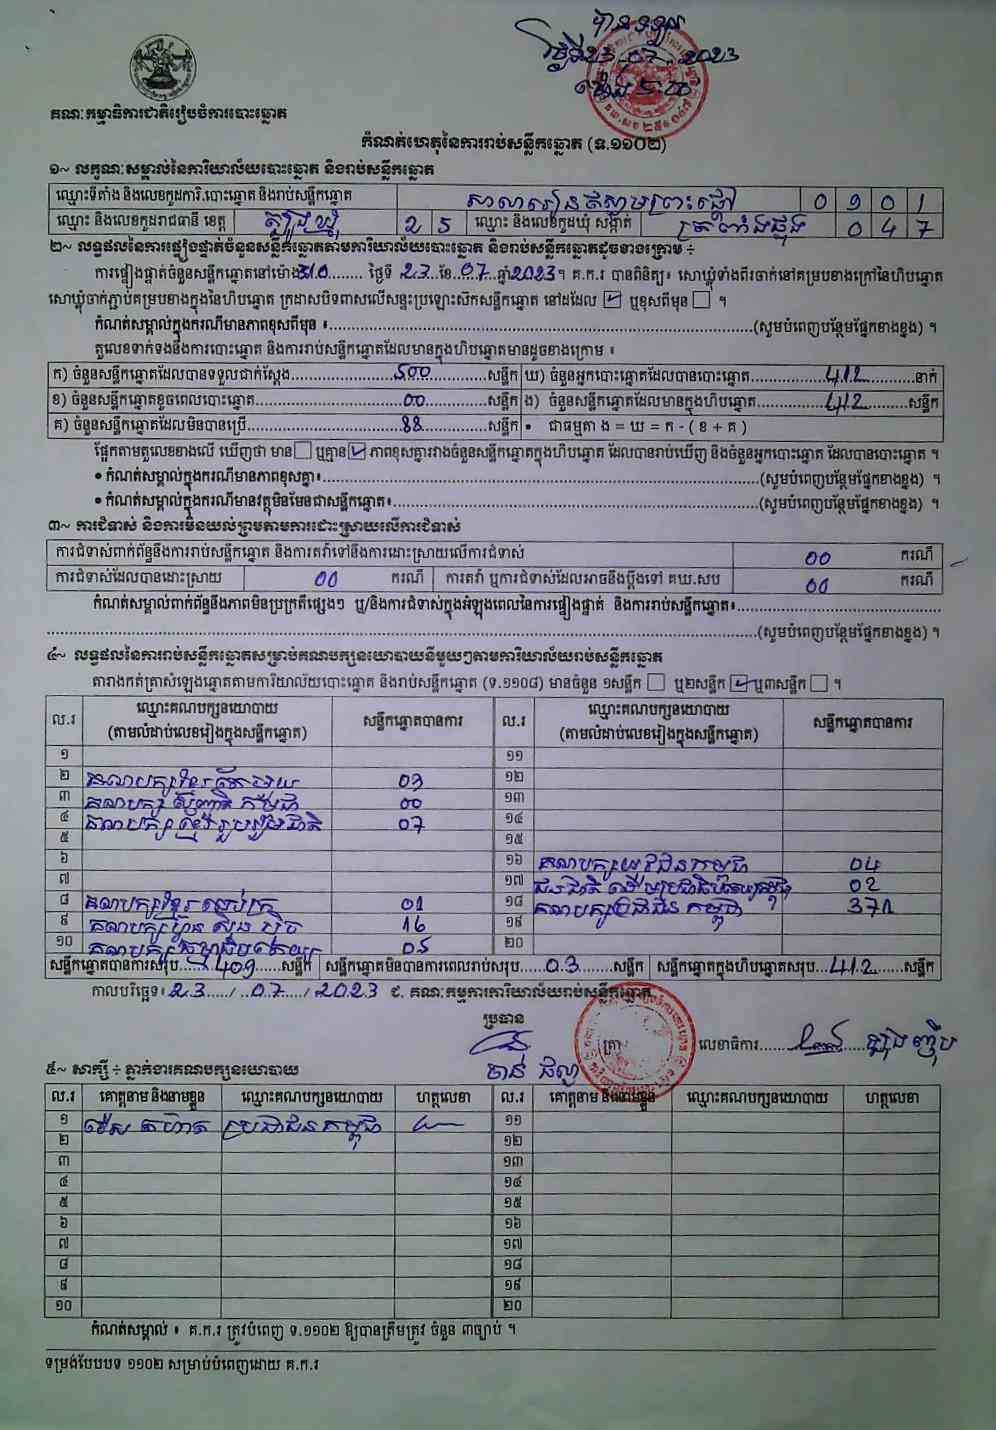 បានទទួល
ថ្ងៃទី23 07 2023
ម៉ោង
គណៈកម្មាធិការជាតិរៀបចំការបោះឆ្នោត
កំណត់ហេតុនៃការរាប់សន្លឹកឆ្នោត (ទ.១១០២)
១~ លក្ខណៈសម្គាល់នៃការិយាល័យបោះឆ្នោត និងរាប់សន្លឹកឆ្នោត
ឈ្មោះទីតាំង និងលេខកូដការិ.បោះឆ្នោត និងរាប់សន្លឹកឆ្នោត សាលារៀនឥស្លាមព្រះផ្តៅ 0901
ឈ្មោះ និងលេខកូដរាជធានី ខេត្ត ត្បូងឃ្មុំ 25 ឈ្មោះ និងលេខកូដឃុំ សង្កាត់ ត្រពាំងផ្លុង 047
២~ លទ្ធផលនៃការផ្ទៀងផ្ទាត់ចំនួនសន្លឹកឆ្នោតតាមការិយាល័យបោះឆ្នោត និងរាប់សន្លឹកឆ្នោតដូចខាងក្រោម ÷
ការផ្ទៀងផ្ទាត់ចំនួនសន្លឹកឆ្នោតនៅម៉ោង310........ ថ្ងៃទី 23 ខែ.....07.....ឆ្នាំ2023។ គ.ក.រ បានពិនិត្យ៖ សោឃ្លុំទាំងពីរចាក់នៅគម្របខាងក្រៅនៃហិបឆ្នោត
សោឃ្លុំចាក់ភ្ជាប់គម្របខាងក្នុងនៃហិបឆ្នោត ក្រដាសបិទពាសលើសន្ទះប្រឡោះសឹកសន្លឹកឆ្នោត នៅដដែល ☑ ឬខុសពីមុន ☐ ។
កំណត់សម្គាល់ក្នុងករណីមានភាពខុសពីមុន ៖........(សូមបំពេញបន្ថែមផ្នែកខាងខ្នង) ។
តួលេខទាក់ទងនឹងការបោះឆ្នោត និងការរាប់សន្លឹកឆ្នោតដែលមានក្នុងហិបឆ្នោតមានដូចខាងក្រោម ៖
ក) ចំនួនសន្លឹកឆ្នោតដែលបានទទួលជាក់ស្តែង........500........សន្លឹក ឃ) ចំនួនអ្នកបោះឆ្នោតដែលបានបោះឆ្នោត........412........នាក់
ខ) ចំនួនសន្លឹកឆ្នោតខូចពេលបោះឆ្នោត........00........សន្លឹក ង) ចំនួនសន្លឹកឆ្នោតដែលមានក្នុងហិបឆ្នោត........412........សន្លឹក
គ) ចំនួនសន្លឹកឆ្នោតដែលមិនបានប្រើ........88........សន្លឹក • ជាធម្មតា ង = ឃ = ក - ( ខ + គ )
ផ្អែកតាមតួលេខខាងលើ ឃើញថា មាន☐ ឬគ្មាន☑ ភាពខុសគ្នារវាងចំនួនសន្លឹកឆ្នោតក្នុងហិបឆ្នោត ដែលបានរាប់ឃើញ និងចំនួនអ្នកបោះឆ្នោត ដែលបានបោះឆ្នោត ។
• កំណត់សម្គាល់ក្នុងករណីមានភាពខុសគ្នា៖........(សូមបំពេញបន្ថែមផ្នែកខាងខ្នង) ។
• កំណត់សម្គាល់ក្នុងករណីមានវត្ថុមិនមែនជាសន្លឹកឆ្នោត៖........(សូមបំពេញបន្ថែមផ្នែកខាងខ្នង) ។
៣~ ការជំទាស់ និងការមិនយល់ព្រមតាមការដោះស្រាយលើការជំទាស់
ការជំទាស់ពាក់ព័ន្ធនឹងការរាប់សន្លឹកឆ្នោត និងការតវ៉ាទៅនឹងការដោះស្រាយលើការជំទាស់ 00 ករណី
ការជំទាស់ដែលបានដោះស្រាយ 00 ករណី ការតវ៉ា ឬការជំទាស់ដែលអាចនឹងប្តឹងទៅ គឃ.សប 00 ករណី
កំណត់សម្គាល់ពាក់ព័ន្ធនឹងភាពមិនប្រក្រតីផ្សេងៗ ឬ/និងការជំទាស់ក្នុងអំឡុងពេលនៃការផ្ទៀងផ្ទាត់ និងការរាប់សន្លឹកឆ្នោត៖........
........(សូមបំពេញបន្ថែមផ្នែកខាងខ្នង) ។
៤~ លទ្ធផលនៃការរាប់សន្លឹកឆ្នោតសម្រាប់គណបក្សនយោបាយនីមួយៗតាមការិយាល័យរាប់សន្លឹកឆ្នោត
តារាងកត់ត្រាសំឡេងឆ្នោតតាមការិយាល័យបោះឆ្នោត និងរាប់សន្លឹកឆ្នោត (ទ.១១០៨) មានចំនួន ១សន្លឹក ☐ ឬ២សន្លឹក ☑ ឬ៣សន្លឹក ☐ ។
ល.រ ឈ្មោះគណបក្សនយោបាយ (តាមលំដាប់លេខរៀងក្នុងសន្លឹកឆ្នោត) សន្លឹកឆ្នោតបានការ ល.រ ឈ្មោះគណបក្សនយោបាយ (តាមលំដាប់លេខរៀងក្នុងសន្លឹកឆ្នោត) សន្លឹកឆ្នោតបានការ
១ ១១
២ គណបក្ស 03 ១២
៣ គណបក្ស កម្ពុជា 00 ១៣
៤ គណបក្ស ជាតិ 07 ១៤
៥ ១៥
៦ ១៦ គណបក្សយុវជនកម្ពុជា 04
៧ ១៧ 02
៨ គណបក្សខ្មែរ 01 ១៨ គណបក្សប្រជាជន កម្ពុជា 371
៩ គណបក្សហ៊្វុន ស៊ិន ប៉ិច 16 ១៩
១០ គណបក្ស 05 ២០
សន្លឹកឆ្នោតបានការសរុប......409......សន្លឹក សន្លឹកឆ្នោតមិនបានការពេលរាប់សរុប......03......សន្លឹក សន្លឹកឆ្នោតក្នុងហិបឆ្នោតសរុប...412......សន្លឹក
កាលបរិច្ឆេទ៖ 23 / 07 / 2023 ជ. គណៈកម្មការការិយាល័យរាប់សន្លឹកឆ្នោត
ប្រធាន
ត្រា លេខាធិការ
៥~ សាក្សី ÷ ភ្នាក់ងារគណបក្សនយោបាយ
ល.រ គោត្តនាម និងនាមខ្លួន ឈ្មោះគណបក្សនយោបាយ ហត្ថលេខា ល.រ គោត្តនាម និងនាមខ្លួន ឈ្មោះគណបក្សនយោបាយ ហត្ថលេខា
១ ប្រជាជនកម្ពុជា ១១
២ ១២
៣ ១៣
៤ ១៤
៥ ១៥
៦ ១៦
៧ ១៧
៨ ១៨
៩ ១៩
១០ ២០
កំណត់សម្គាល់ ៖ គ.ក.រ ត្រូវបំពេញ ទ.១១០២ ឱ្យបានត្រឹមត្រូវ ចំនួន ៣ច្បាប់ ។
ទម្រង់បែបបទ ១១០២ សម្រាប់បំពេញដោយ គ.ក.រ